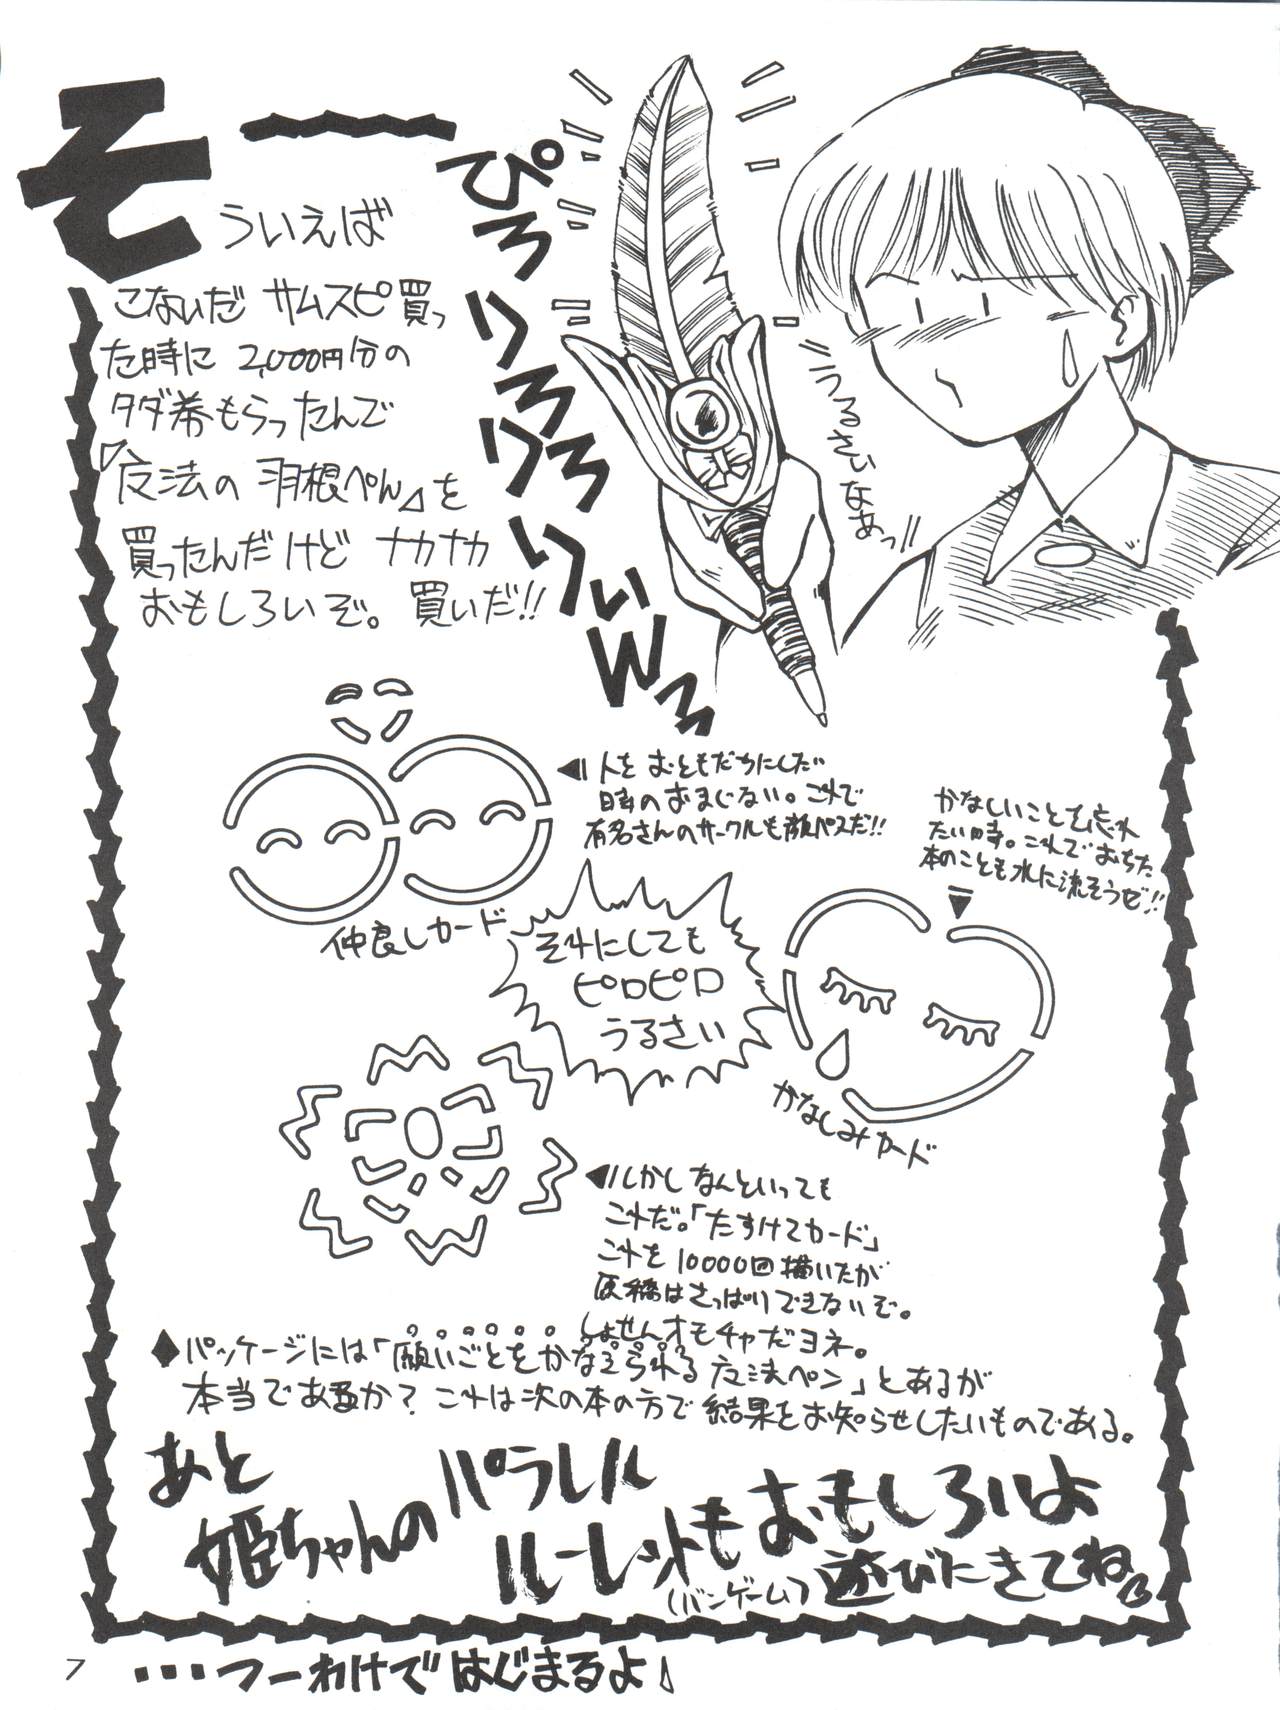 そーういえば
こないだ サムスピ買っ
た時に 2,000円分の
タダ券もらったんで
『魔法の羽根ぺん』を
買ったんだけど ナカナカ
おもしろいぞ。買いだ!!
ぴろりろりろりろりぃW
うるさいなあっ!!
◀人をおともだちにしたい
時のおまじない。これで
有名さんのサークルも顔パスだ!!
仲良しカード
かなしいことを忘れ
たい時。これでおちた
本のことも水に流そうぜ!!
かなしみカード
それにしても
ピロピロ
うるさい
◀しかしなんといっても
これだ。「たすけてカード」
これを10000回描いたが
原稿はさっぱりできないぞ。
しょせんオモチャだヨネ。
◆パッケージには「願いごとをかなえられる魔法ペン」とあるが
本当であるか？これは次の本の方で結果をお知らせしたいものである。
あと
姫ちゃんのパラレル
ルーレットもおもしろいよ
(バンゲーム)
遊びにきてね
7
・・・つーわけではじまるよ♪